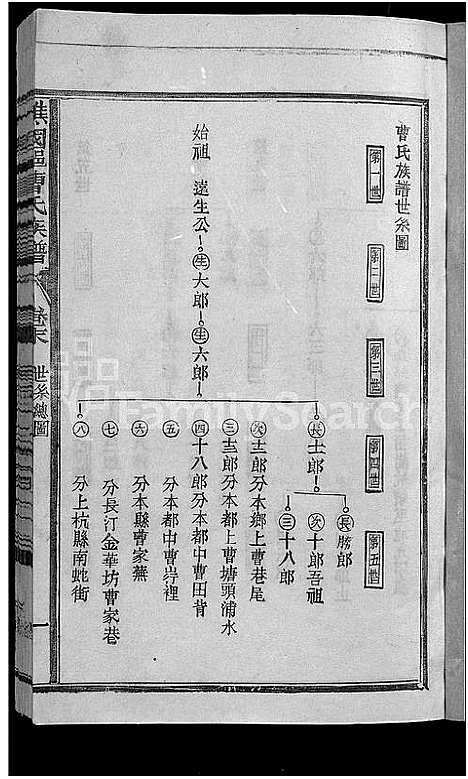 曹氏族譜世系圖
第一世
第二世
第三世
第四世
第五世
始祖 遠生公 生 大郎 生 六郎
長 十一郎
長 勝郎
次 十郎吾祖
三 十八郎
次 十二郎分本鄉上曹巷尾
三 十三郎分本都上曹塘頭浦水
四 十八郎分本都中曹田背
五 分本都中曹坑裡
六 分本縣曹家
七 分長汀金華坊曹家巷
八 分上杭縣南蛇街
譙國郡曹氏族譜 卷 世系總圖 一
FamilySearch